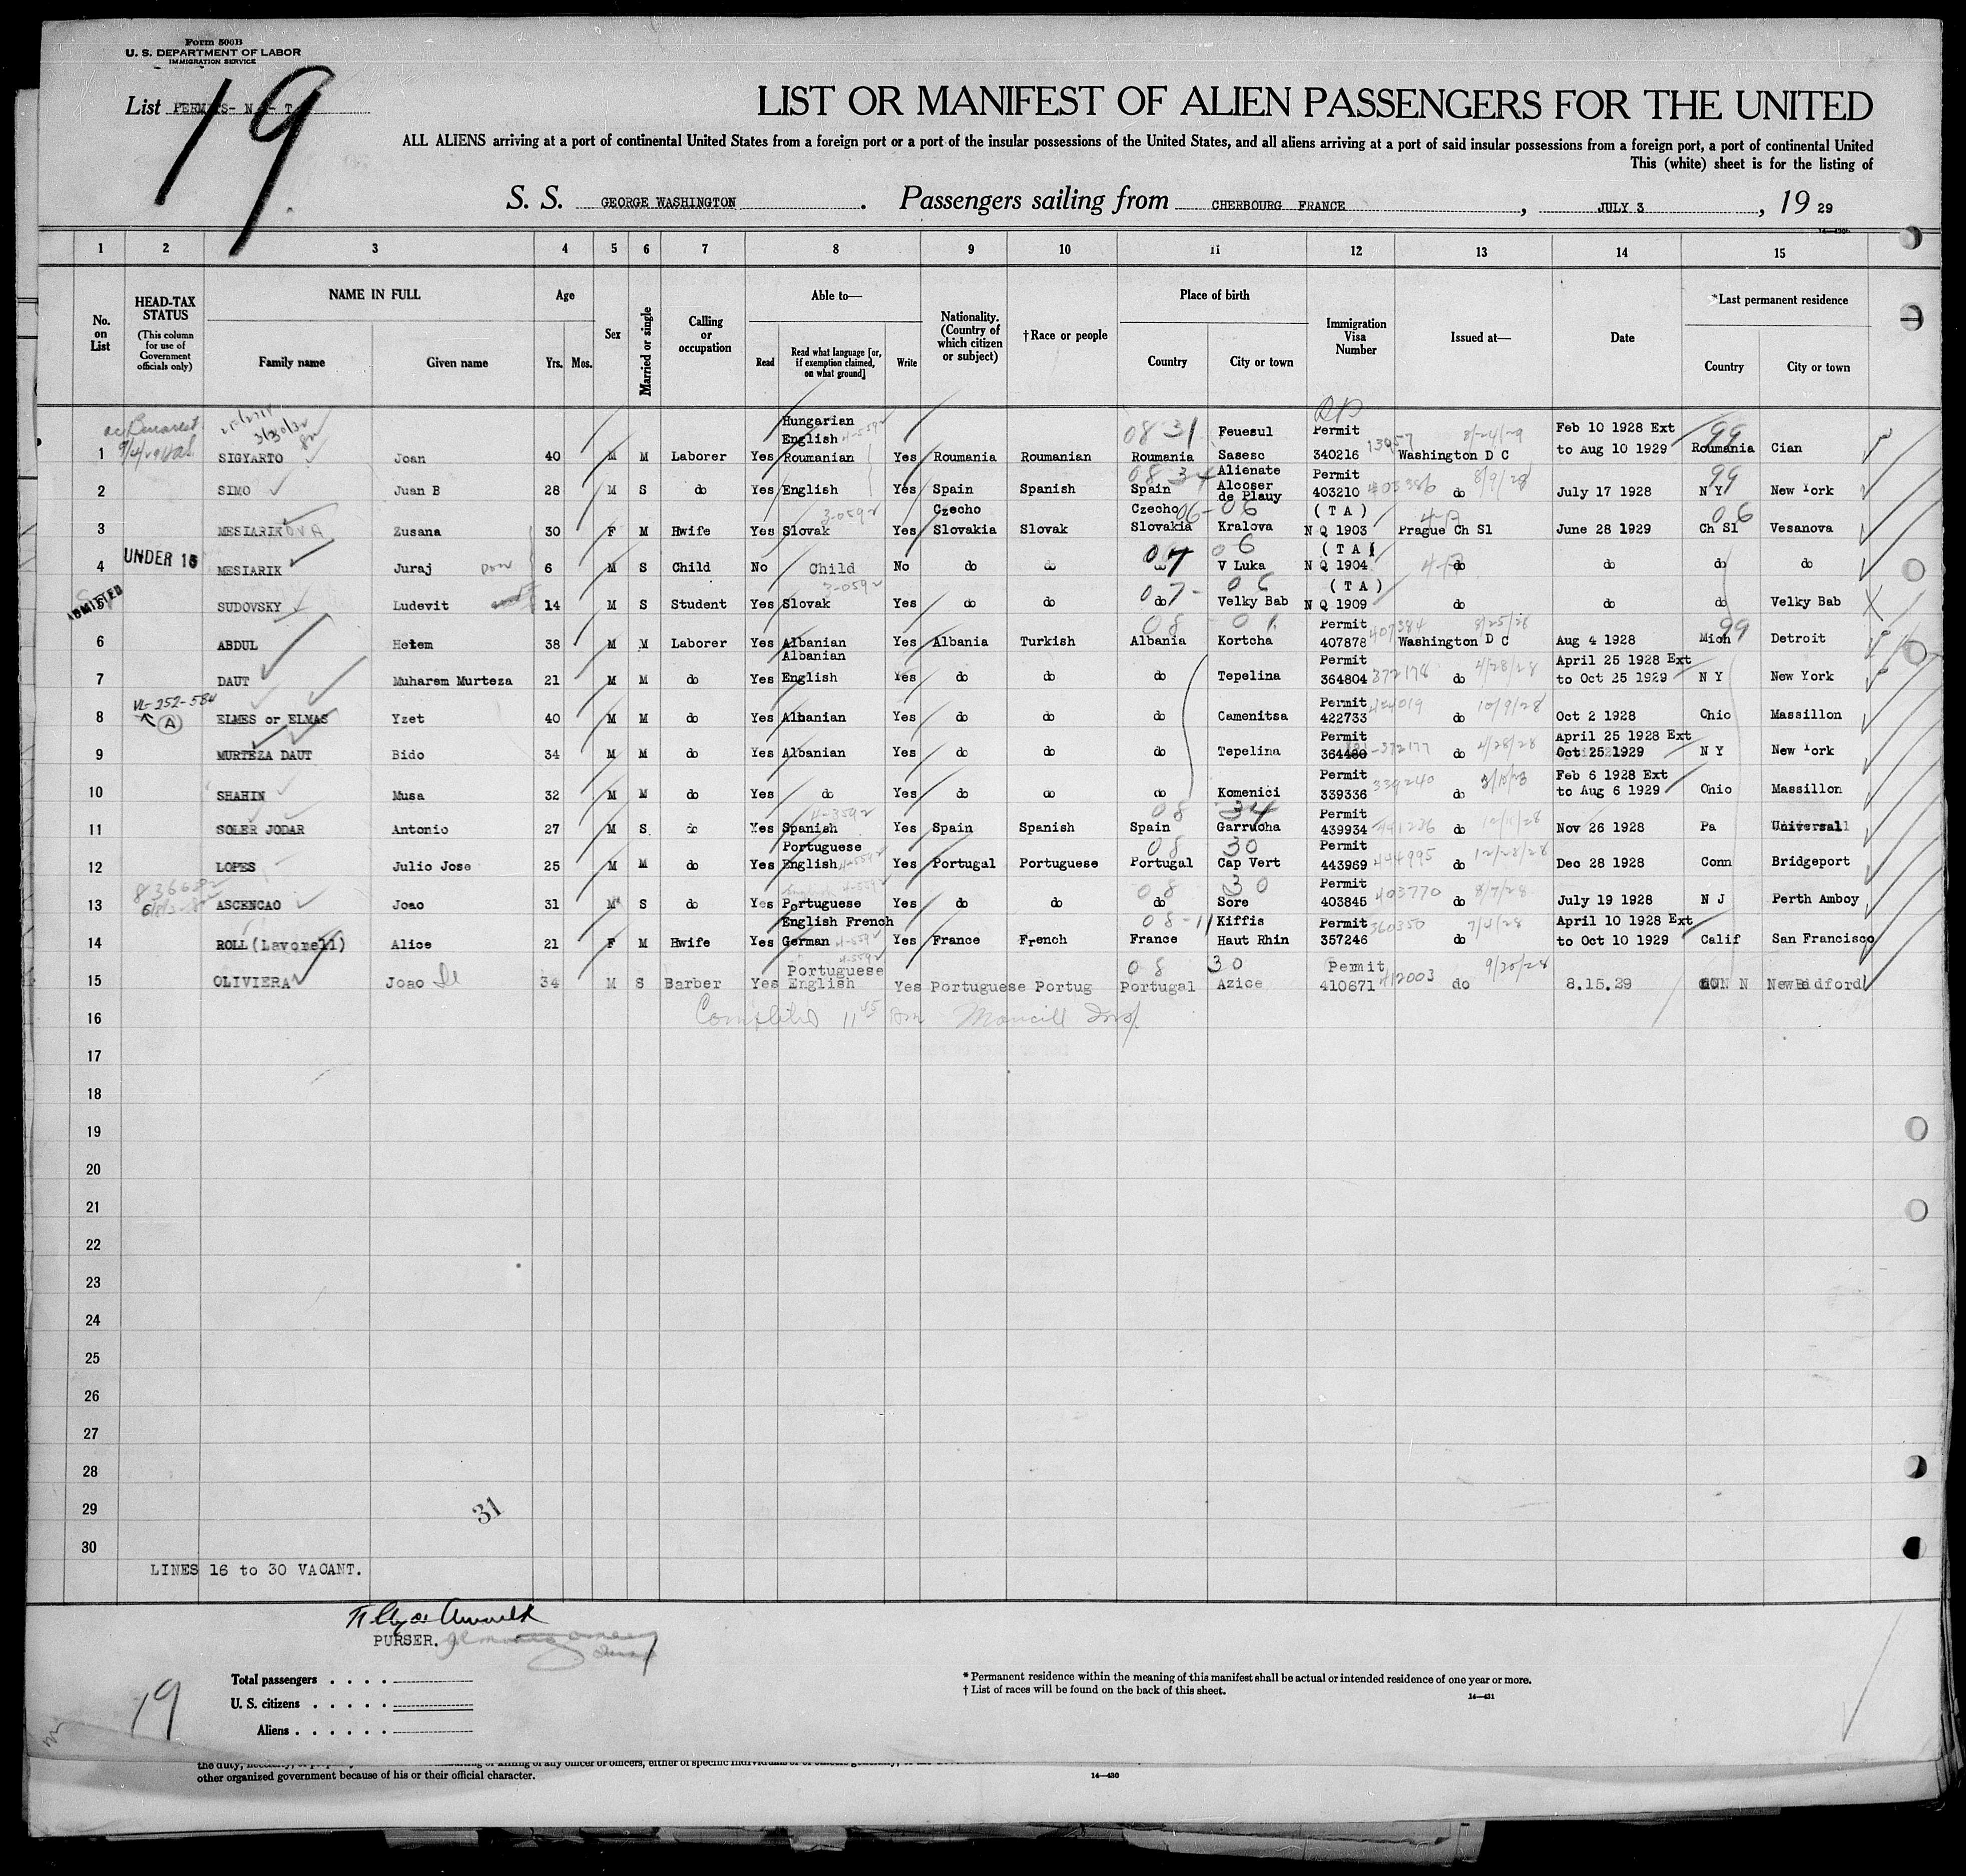 Form 500B
U. S. DEPARTMENT OF LABOR
IMMIGRATION SERVICE
List PERMITS- N - T
19
LIST OR MANIFEST OF ALIEN PASSENGERS FOR THE UNITED
ALL ALIENS arriving at a port of continental United States from a foreign port or a port of the insular possessions of the United States, and all aliens arriving at a port of said insular possessions from a foreign port, a port of continental United
This (white) sheet is for the listing of
S. S. GEORGE WASHINGTON . Passengers sailing from CHERBOURG FRANCE , JULY 3 , 19 29
1 2 3 4 5 6 7 8 9 10 11 12 13 14 15
No. on List
HEAD-TAX STATUS (This column for use of Government officials only)
NAME IN FULL
Family name Given name
Age
Yrs. Mos.
Sex
Married or single
Calling or occupation
Able to—
Read Read what language [or, if exemption claimed, on what ground] Write
Nationality. (Country of which citizen or subject)
†Race or people
Place of birth
Country City or town
Immigration Visa Number
Issued at—
Date
*Last permanent residence
Country City or town
Hungarian
English Feuesul Permit 8/24/29 Feb 10 1928 Ext
1 SIGYARTO Joan 40 M M Laborer Yes Roumanian Yes Roumania Roumanian Roumania Sasesc 340216 Washington D C to Aug 10 1929 Roumania Cian
08 34 Alienate Permit
2 SIMO Juan B 28 M S do Yes English Yes Spain Spanish Spain Alcoser de Plauy 403210 do 8/9/28 July 17 1928 N Y New York
Czecho Czecho 06 (TA)
3 MESIARIKOVA Zusana 30 F M Hwife Yes Slovak Yes Slovakia Slovak Slovakia Kralova N Q 1903 Prague Ch Sl June 28 1929 Ch Sl Vesanova
UNDER 16 (TA)
4 MESIARIK Juraj 6 M S Child No Child No do do do V Luka N Q 1904 do do do do
ADMITTED (TA)
5 SUDOVSKY Ludevit 14 M S Student Yes Slovak Yes do do do Velky Bab N Q 1909 do do do Velky Bab
Permit 407384 8/25/28
6 ABDUL Hetem 38 M M Laborer Yes Albanian Yes Albania Turkish Albania Kortcha 407878 Washington D C Aug 4 1928 Mich Detroit
Albanian Permit April 25 1928 Ext
7 DAUT Muharem Murteza 21 M M do Yes English Yes do do do Tepelina 364804 372178 do 4/28/28 to Oct 25 1929 N Y New York
VL-252-584 Permit 424019 10/9/28
8 (A) ELMES or ELMAS Yzet 40 M M do Yes Albanian Yes do do do Camenitsa 422733 do Oct 2 1928 Ohio Massillon
Permit April 25 1928 Ext
9 MURTEZA DAUT Bido 34 M M do Yes Albanian Yes do do do Tepelina 364480 372177 do 4/28/28 Oct 25 1929 N Y New York
Permit 339240 Feb 6 1928 Ext
10 SHAHIN Musa 32 M M do Yes do Yes do do do Komenici 339336 do to Aug 6 1929 Ohio Massillon
08 34 Permit
11 SOLER JODAR Antonio 27 M S do Yes Spanish Yes Spain Spanish Spain Garrucha 439934 do Nov 26 1928 Pa Universal
Portuguese 08 30 Permit
12 LOPES Julio Jose 25 M M do Yes English Yes Portugal Portuguese Portugal Cap Vert 443969 444995 do 12/28/28 Dec 28 1928 Conn Bridgeport
08 30 Permit
13 ASCENCAO Joao 31 M S do Yes Portuguese Yes do do do Sore 403845 403770 do 8/7/28 July 19 1928 N J Perth Amboy
English French 08-11 Kiffis Permit 360350 April 10 1928 Ext
14 ROLL (Lavorell) Alice 21 F M Hwife Yes German Yes France French France Haut Rhin 357246 do to Oct 10 1929 Calif San Francisco
Portuguese 08 30 Permit 9/20/28
15 OLIVIERA Joao 34 M S Barber Yes English Yes Portuguese Portug Portugal Azice 410671 412003 do 8.15.29 New Bedford
16
17
18
19
20
21
22
23
24
25
26
27
28
29
30
31
LINES 16 to 30 VACANT.
PURSER.
Total passengers
U. S. citizens
Aliens
19
* Permanent residence within the meaning of this manifest shall be actual or intended residence of one year or more.
† List of races will be found on the back of this sheet.
14—431
other organized government because of his or their official character.
14—430